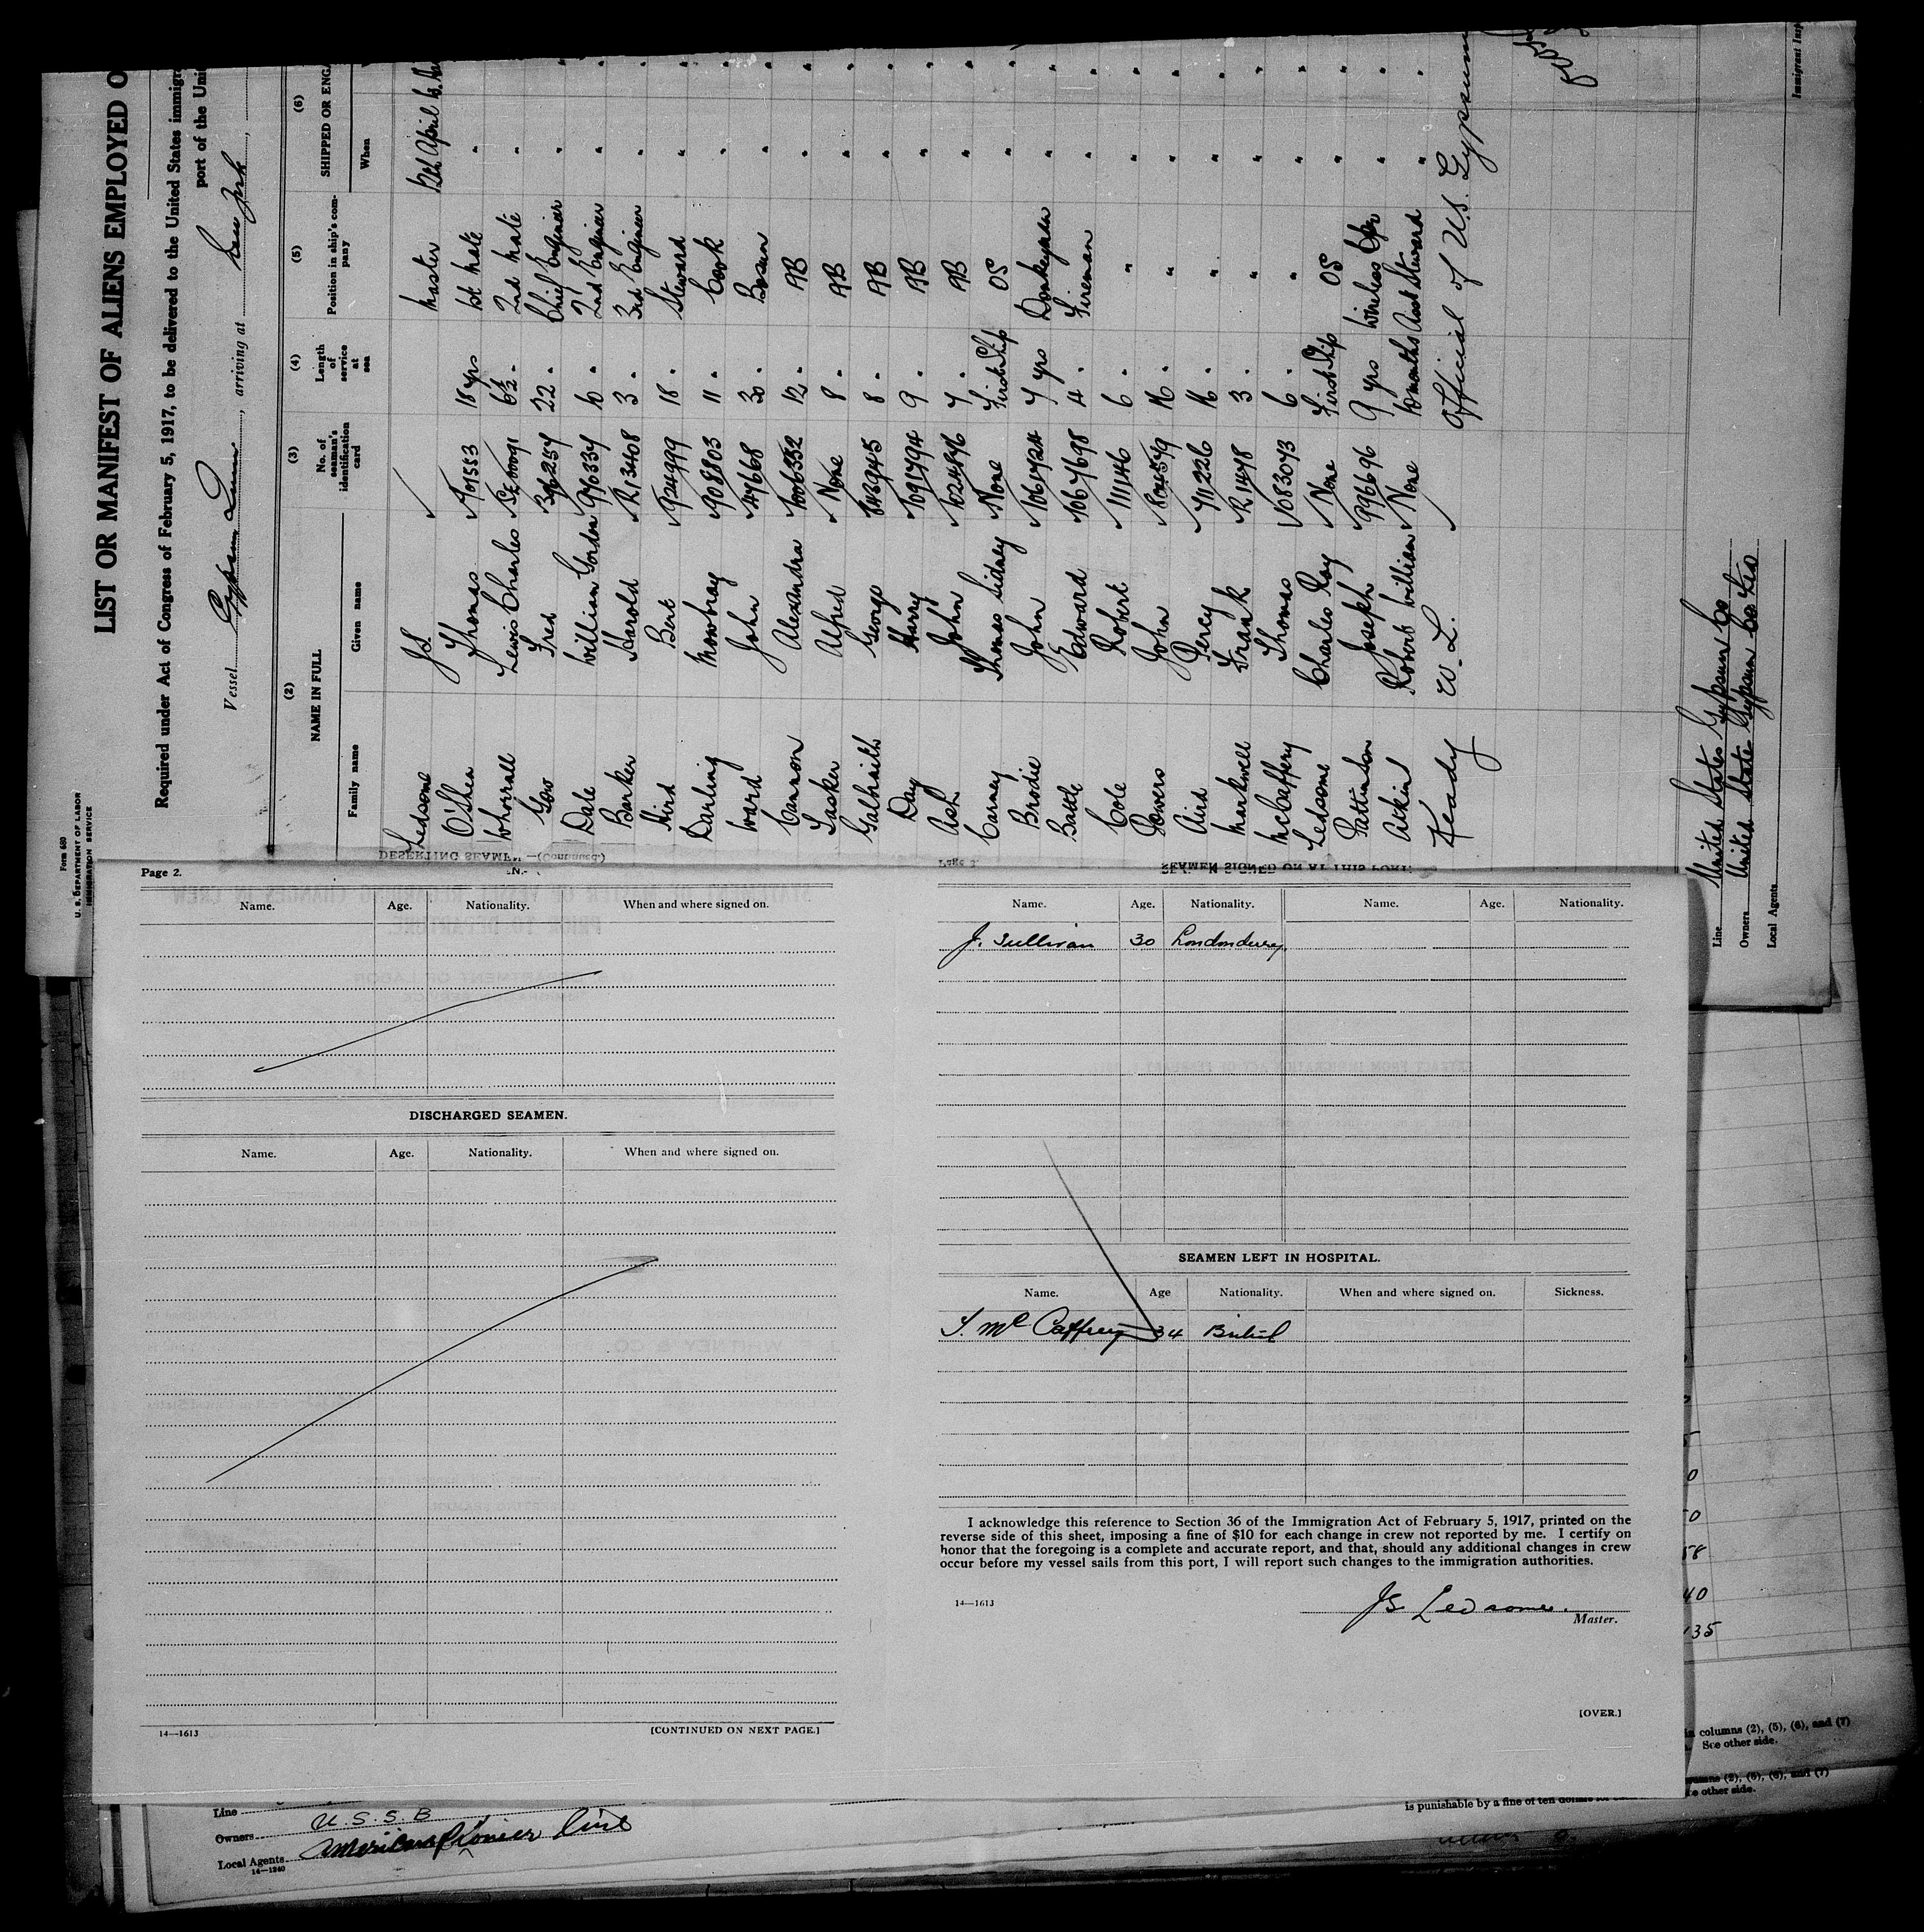 Form 680
U. S. DEPARTMENT OF LABOR
IMMIGRATION SERVICE
LIST OR MANIFEST OF ALIENS EMPLOYED O
Required under Act of Congress of February 5, 1917, to be delivered to the United States immigr
port of the Uni
Vessel Gypsum Queen, arriving at New York,
(2) (3) (4) (5) (6)
NAME IN FULL No. of seaman's identification card Length of service at sea Position in ship's company SHIPPED OR ENGA
Family name Given name When
Ledsome JS. Master April
O'Shea Thomas 901553 18 yrs 1st Mate "
Whorrall Lewis Charles 6½ " 2nd Mate "
Gow Fred 22 " Chief Engineer "
Dale William Gordon 976334 10 " 2nd Engineer "
Barker Harold R13408 3 " 3rd Engineer "
Hird Bert 924999 18 " Steward "
Darling Mowbray 908803 11 " Cook "
Ward John 47668 30 " Bosun "
Cannon Alexandra 1006332 12 " AB "
Tasker Alfred None 8 " AB "
Galbraith George 8 " AB "
Day Harry 1091794 9 " AB "
Ash John 7 " AB "
Carney Thomas Sidney None First Ship OS "
Brodie John 1061724 7 yrs Donkeyman "
Battle Edward 1067698 4 " Fireman "
Cole Robert 111146 6 " " "
Powers John 16 " " "
Aird Percy 711226 16 " " "
Markwell Frank R1478 3 " " "
McCaffery Thomas 1083073 6 " " "
Ledsome Charles Roy None First Ship OS "
Pattinson Joseph 996696 9 yrs Wireless Opr "
Atkin Robert William None 10 months Asst Steward "
Keady W. L. Official of U.S. Gypsum
Line United States Gypsum Co
Owners United State Gypsum Co
Local Agents
Immigrant Insp
DESERTING SEAMEN—(Continued.)
Page 3.
SEAMEN SIGNED ON AT THIS PORT.
Page 2.
Name. Age. Nationality. When and where signed on.
DISCHARGED SEAMEN.
Name. Age. Nationality. When and where signed on.
14—1613 [CONTINUED ON NEXT PAGE.]
Name. Age. Nationality. Name. Age. Nationality.
J. Sullivan 30 Londonderry
SEAMEN LEFT IN HOSPITAL.
Name. Age Nationality. When and where signed on. Sickness.
T. McCaffrey 34 British
I acknowledge this reference to Section 36 of the Immigration Act of February 5, 1917, printed on the
reverse side of this sheet, imposing a fine of $10 for each change in crew not reported by me. I certify on
honor that the foregoing is a complete and accurate report, and that, should any additional changes in crew
occur before my vessel sails from this port, I will report such changes to the immigration authorities.
14—1613
JS Ledsome.
Master.
[OVER.]
58
40
135
in columns (2), (5), (6), and (7)
See other side.
columns (2), (5), (6), and (7)
other side.
is punishable by a fine of ten
Line
Owners U.S.S.B
Local Agents American Pioneer Line
14—1240